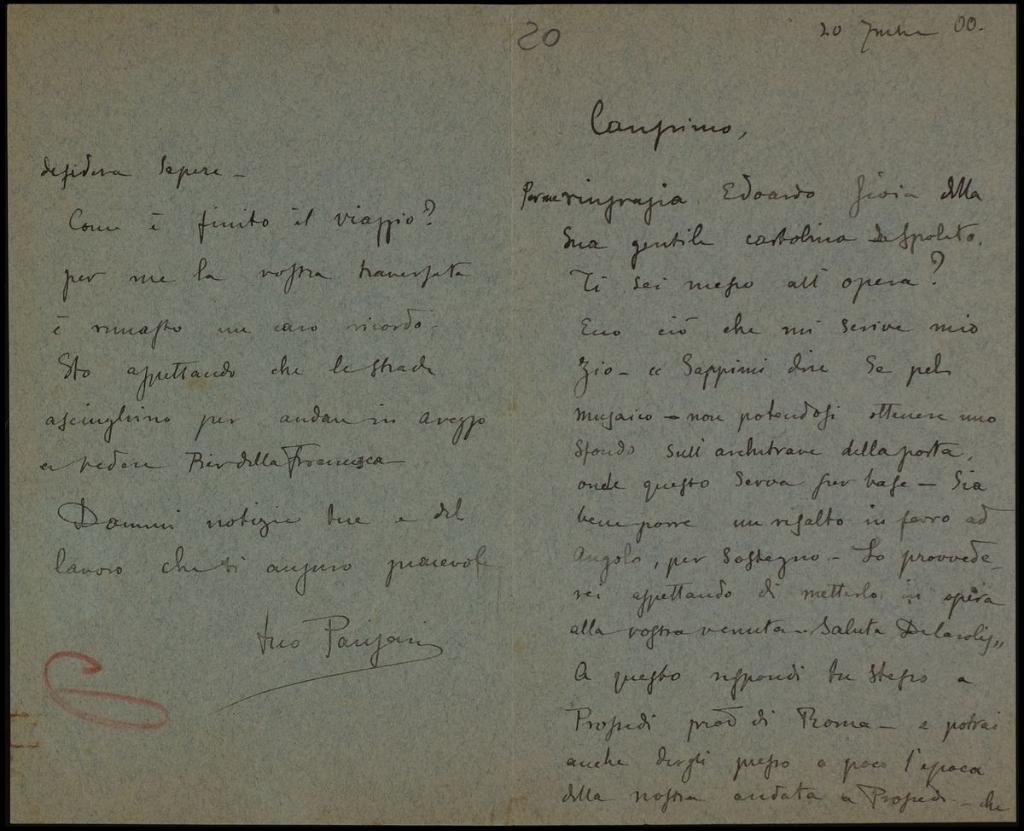 20
20 00.
Carissimo,
Per me ringrazia Edoardo Gioia della
Sua gentile cartolina da Spoleto.
Ti sei messo all' opera?
Ecco ciò che mi scrive mio
Zio - « Sappimi dire se pel
musaico - non potendosi ottenere uno
sfondo sull' architrave della porta,
onde questo serva per base - sia
bene porre un risalto in ferro ad
angolo, per sostegno - Lo provvede-
rei aspettando di metterlo in opera
alla vostra venuta - Saluta Decarolis,,
A questo rispondi tu stesso a
Prossedi prov di Roma - e potrai
anche dirgli presso a poco l'epoca
della nostra andata a Prossedi - che
desidera sapere -
Come è finito il viaggio?
per me la vostra traversata
è rimasto un caro ricordo -
Sto aspettando che le strade
asciughino per andare in Arezzo
a vedere Pier della Francesca -
Dammi notizie tue e del
lavoro che ti auguro piacevole
tuo Parisani